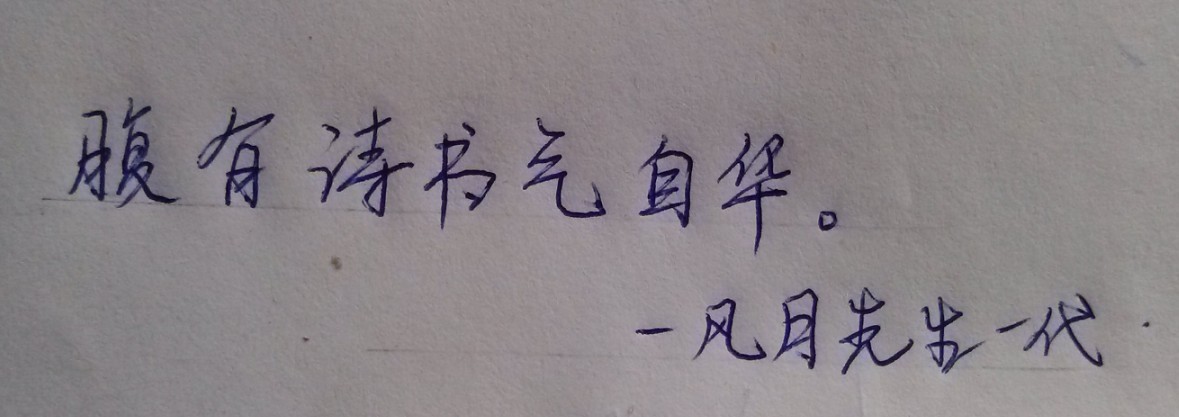 腹有诗书气自华。
一风月先生一代